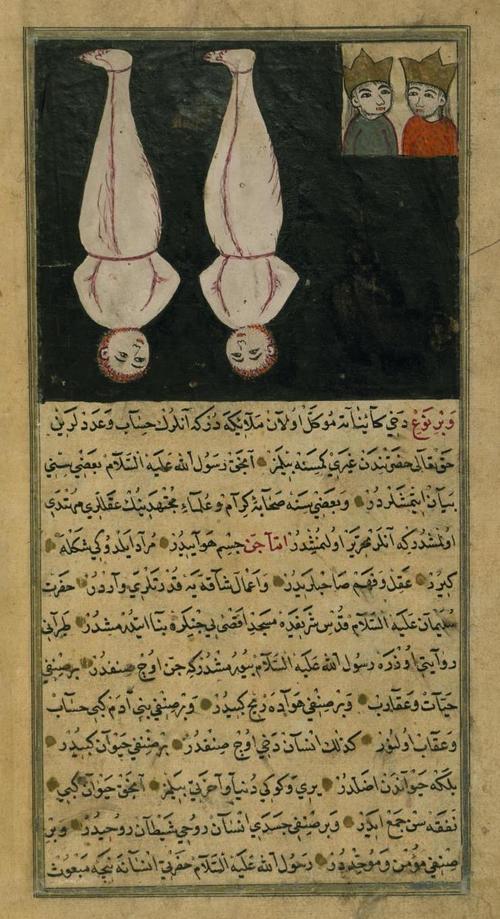 وبر نوع دخی کائیناته موکل اولان ملائیکه درکه آنلرك حساب وعددلرینی
حق تعالی حضرتندن غیری کمسنه بیلمز آنجق رسول الله علیه السلام بعضی سنی
بیان ایتمشلردر وبعضی سنه صحابۀ کرام وعلماء مجتهدینك عقللری مهتدی
اولمشدرکه آنلر محرر اولمشدر اما جن جسم هوایدر مراد ایلدوکی شکله
کیرر عقل وفهم صاحبلریدر واعمال شاقه یه قدرتلری واردر حضرت
سلیمان علیه السلام قدس شریفده مسجد اقصی یی جنلره بنا ایتدرمشدر طبرانی
روایتی اوذره رسول الله علیه السلام بیورمشدرکه جن اوچ صنفدر بر صنفی
حیات وعقارب وبر صنفی هواده ریح کبیدر وبر صنفی بنی آدم کبی حساب
وعقاب اولنور کذلك انسان دخی اوچ صنفدر بر صنفی حیوان کبیدر
بلکه حیواندن اضلدر ییری وکوکی دنیا وآخرتی بیلمز آنجق حیوان کبی
نفقه سن جمع ایدر وبر صنفی جسدی انسان روحی شیطان روحیدر وبر
صنفی مؤمن وموحددر رسول الله علیه السلام حضرتی انسانه نیجه مبعوث